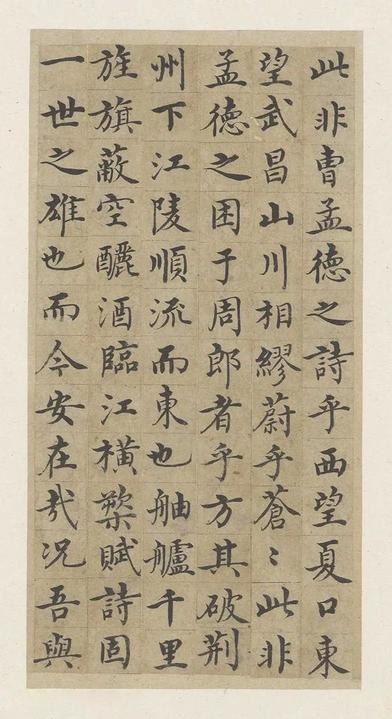 此非曹孟德之詩乎西望夏口東
望武昌山川相繆蔚乎蒼〻此非
孟德之困于周郎者乎方其破荆
州下江陵順流而東也舳艫千里
旌旗蔽空釃酒臨江橫槊賦詩固
一世之雄也而今安在㢤况吾與